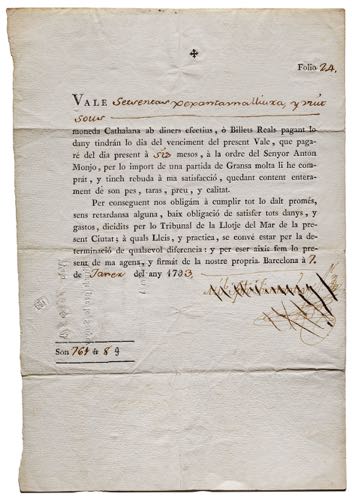 Folio 24.
VALE
sous
moneda Cathalana ab diners efectius, ò Billets Reals pagant lo
dany tindrán lo dia del venciment del present Vale, que paga-
ré del dia present à Siz mesos, à la ordre del Senyor Anton
Monjo, per lo import de una partida de Gransa molta li he com-
prát, y tinch rebuda à ma satisfacció, quedant content entera-
ment de son pes, taras, preu, y calitat.
Per conseguent nos obligám à cumplir tot lo dalt promés,
sens retardansa alguna, baix obligació de satisfer tots danys, y
gastos, dicidits per lo Tribunal de la Llotje del Mar de la pre-
sent Ciutat; à quals Lleis, y practica, se convé estar per la de-
terminació de qualsevol diferencia: y per eser aixis fem lo pre-
sent de ma agena, y firmát de la nostre propria. Barcelona à 7.
de Janer del any 1783.
Son 761 ʉ 8 ꝯ